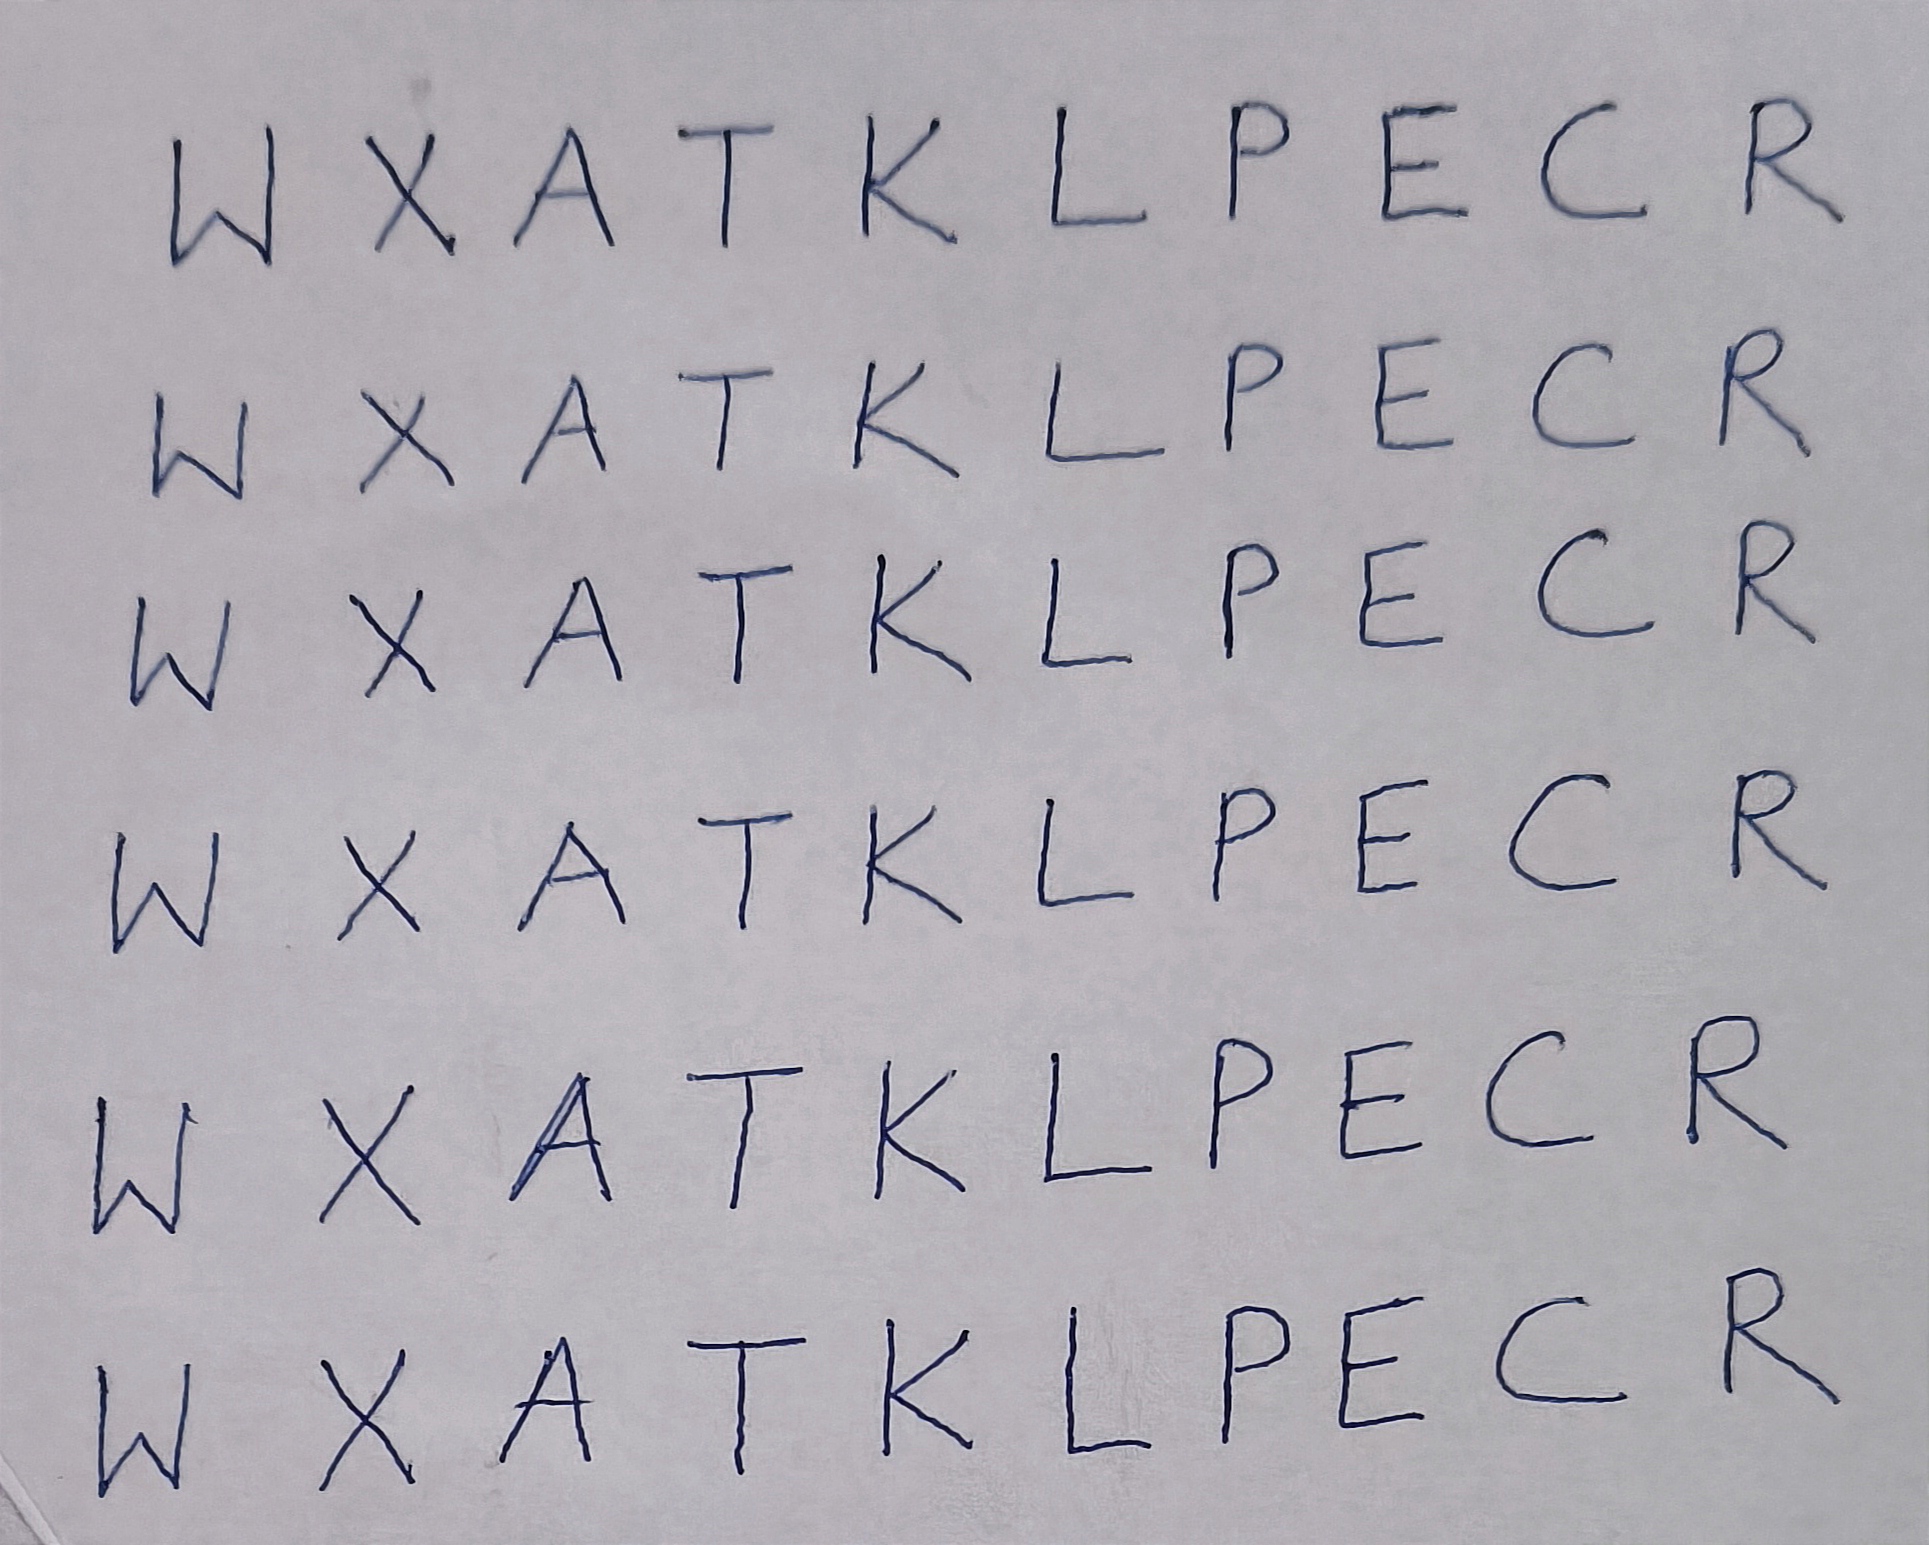 W X A T K L P E C R
W X A T K L P E C R
W X A T K L P E C R
W X A T K L P E C R
W X A T K L P E C R
W X A T K L P E C R